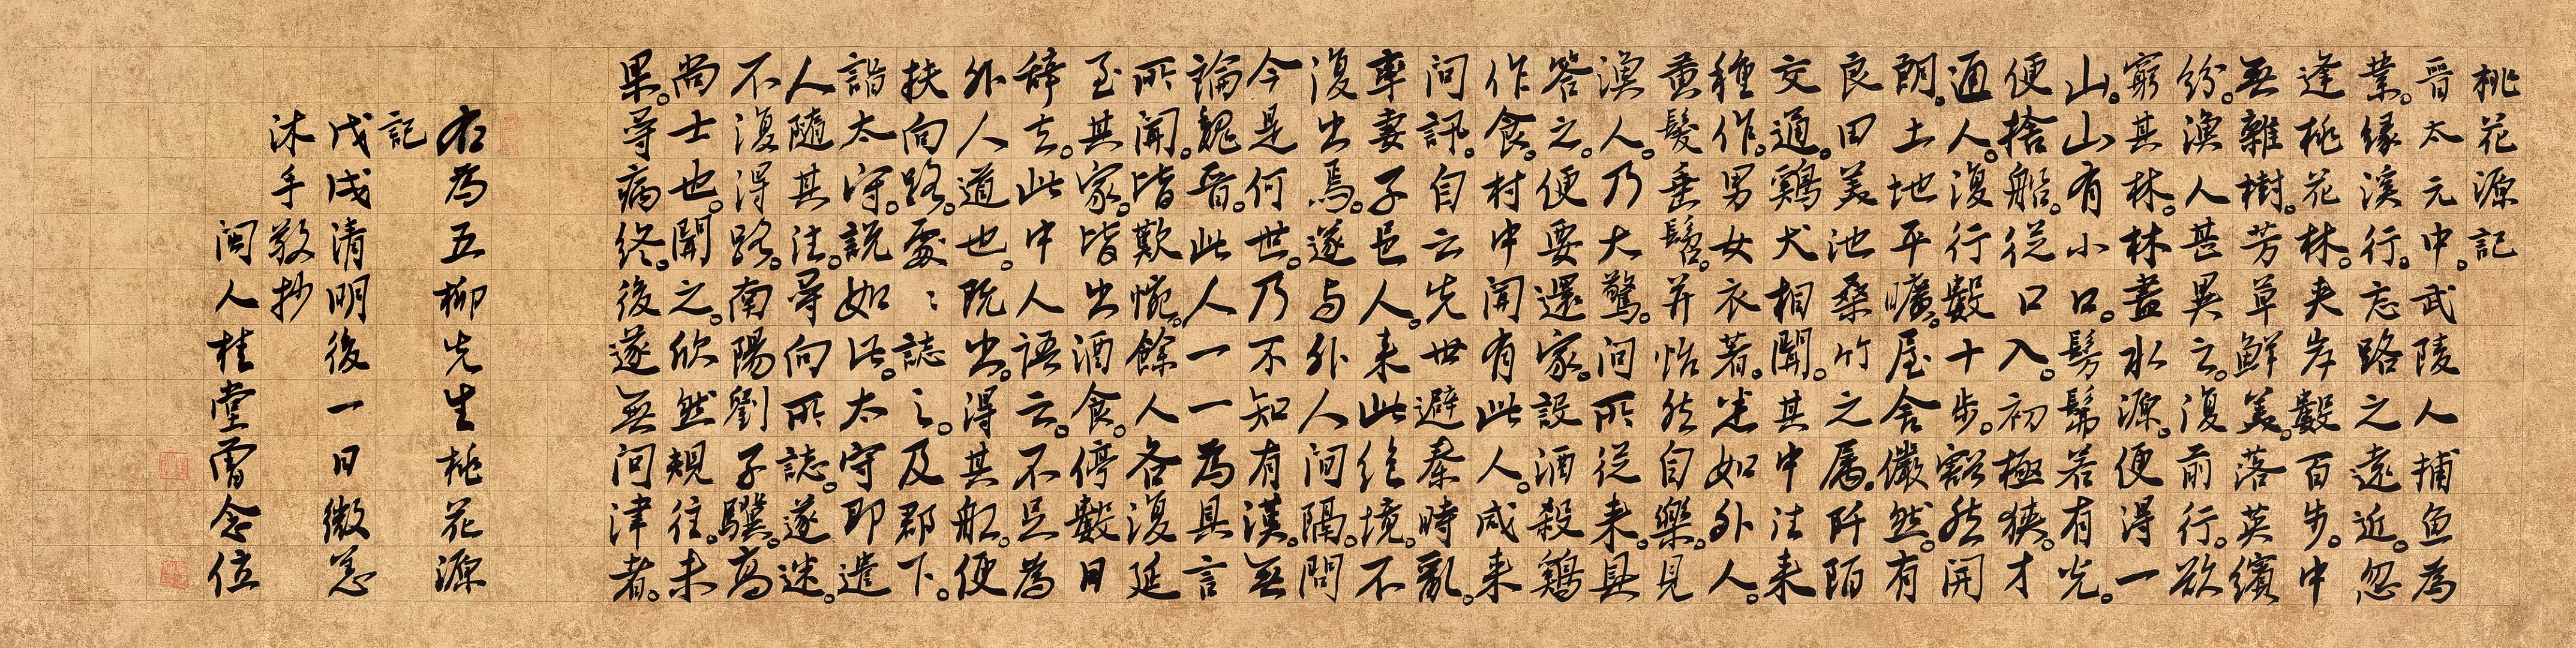 桃花源記
晉太元中。武陵人捕魚為
業。緣溪行。忘路之遠近。忽
逢桃花林。夾岸數百步。中
無雜樹。芳草鮮美。落英繽
紛。漁人甚異之。復前行。欲
窮其林。林盡水源。便得一
山。山有小口。髣髴若有光。
便捨船。從口入。初極狹。才
通人。復行數十步。豁然開
朗。土地平曠。屋舍儼然。有
良田美池桑竹之屬。阡陌
交通。雞犬相聞。其中往来
種作。男女衣著。悉如外人。
黃髮垂髫。并怡然自樂。見
漁人。乃大驚。問所從来。具
答之。便要還家。設酒殺雞
作食。村中聞有此人。咸来
問訊。自云先世避秦時亂。
率妻子邑人。来此絕境。不
復出焉。遂与外人間隔。問
今是何世。乃不知有漢。無
論魏晉。此人一一為具言
所聞。皆歎惋。餘人各復延
至其家。皆出酒食。停數日
辞去。此中人語云。不足為
外人道也。既出。得其船。便
扶向路。處〻誌之。及郡下。
詣太守。說如此。太守即遣
人隨其往。尋向所誌。遂迷。
不復得路。南陽劉子驥。高
尚士也。聞之。欣然規往。未
果。尋病終。後遂無問津者。
右為五柳先生桃花源
記
戊戌清明後一日微恙
沐手敬抄
閩人桂堂雷念位